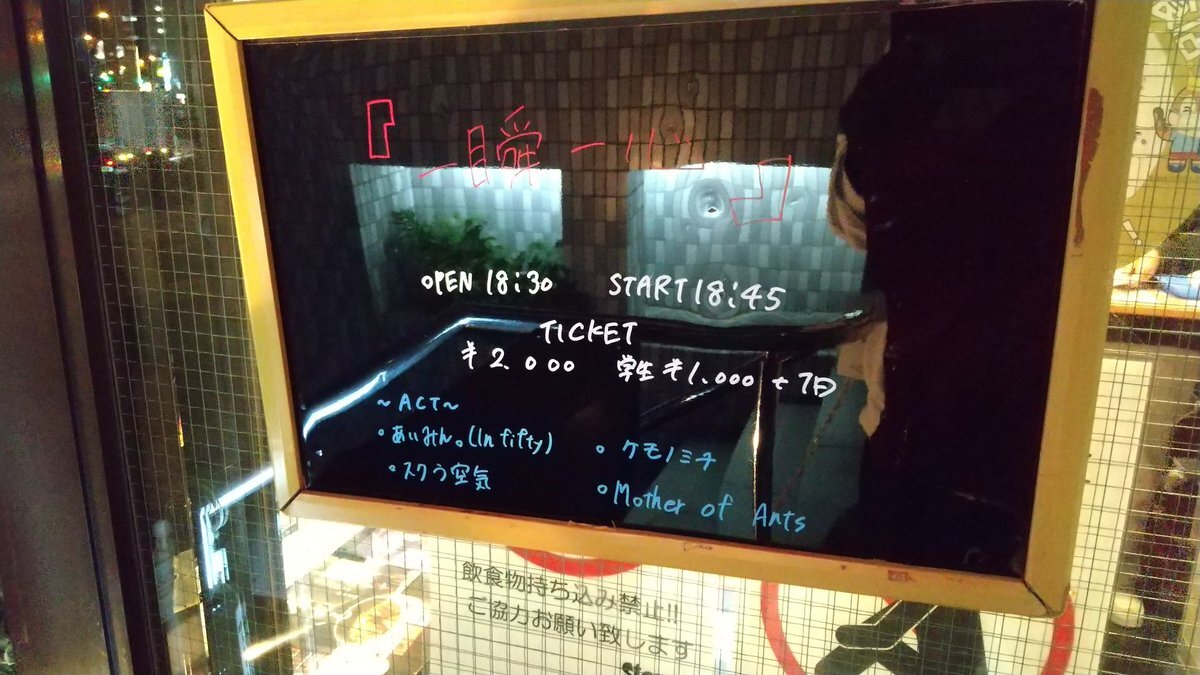 『一瞬一心』
OPEN 18:30 START 18:45
TICKET
¥2.000 学生 ¥1.000 +1D
~ACT~
・あいみん。(In fifty)
・ケモノミチ
・スクう空気
・Mother of Ants
飲食物持ち込み禁止!!
ご協力お願い致します